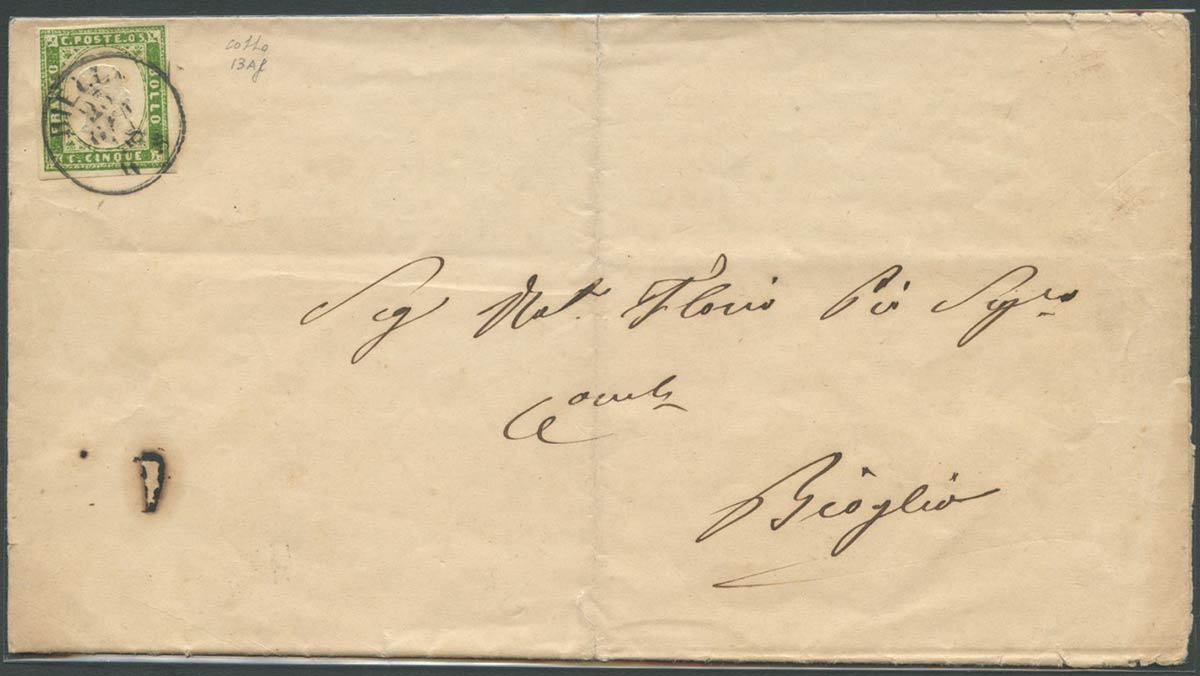 C. POSTE. 05
FRANCO
BOLLO
C. CINQUE
BIELLA
25
13Af
Sig Not. Florio Pio Sigra
Bioglio